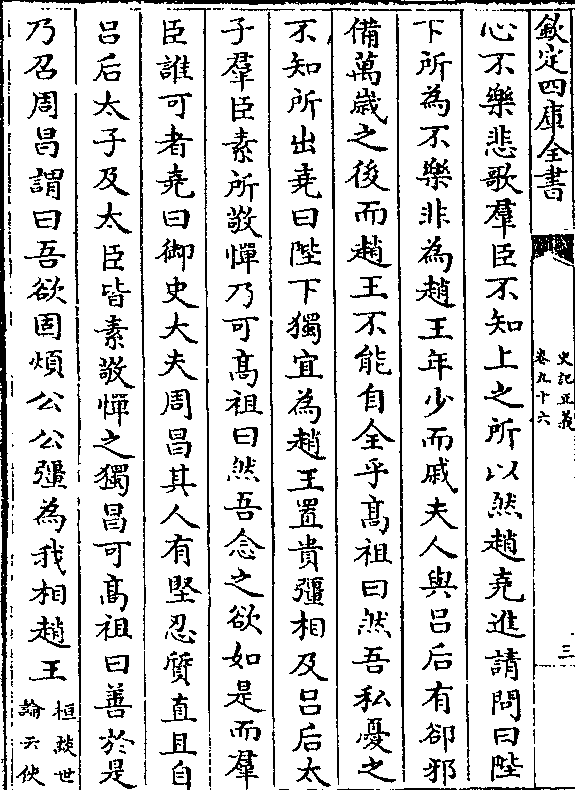 欽定四庫全書
史記正義
卷九十六
三
心不樂悲歌羣臣不知上之所以然趙堯進請問曰陛
下所為不樂非為趙王年少而戚夫人與吕后有郤邪
備萬歲之後而趙王不能自全乎髙祖曰然吾私憂之
不知所出堯曰陛下獨宜為趙王置貴彊相及吕后太
子羣臣素所敬憚乃可髙祖曰然吾念之欲如是而羣
臣誰可者堯曰御史大夫周昌其人有堅忍質直且自
吕后太子及大臣皆素敬憚之獨昌可髙祖曰善於是
乃召周昌謂曰吾欲固煩公公彊為我相趙王
桓譚世
論云使